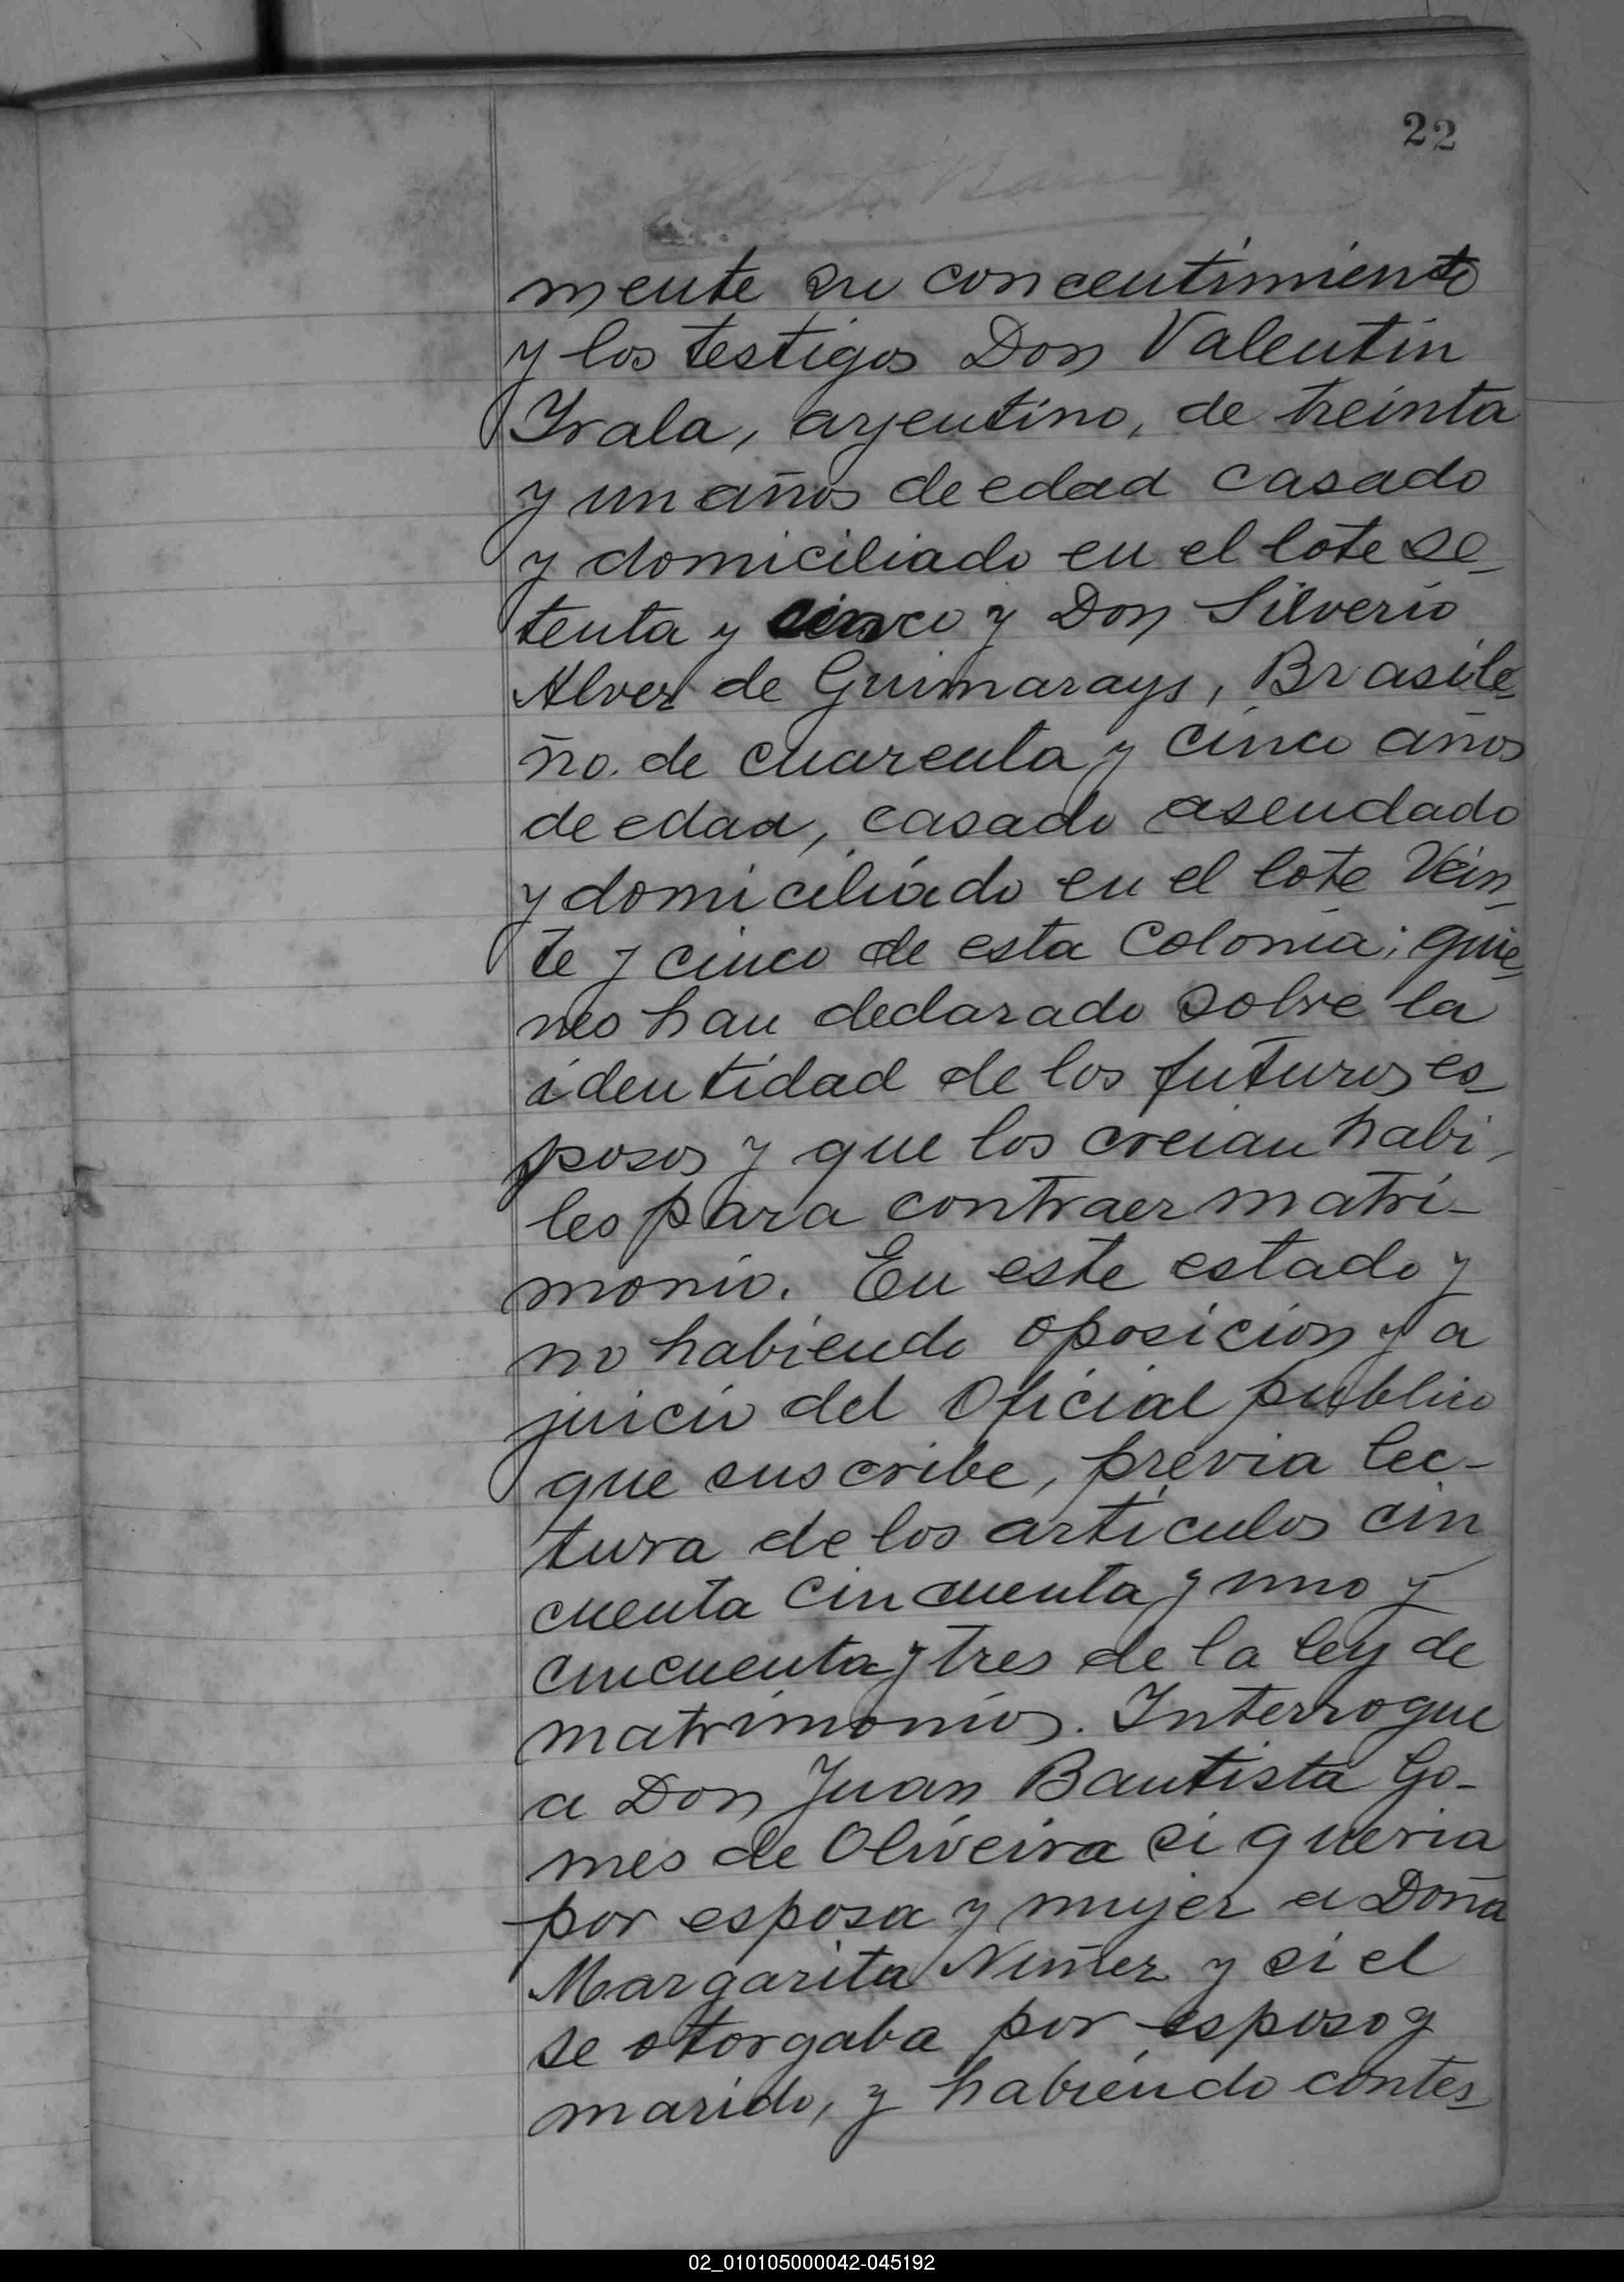 22
mente su concentimiento
y los testigos Don Valentin
Yrala, argentino, de treinta
y un años de edad casado
y domiciliado en el lote se_
tenta y cinco y Don Silverio
Alvez de Guimarays, Brasile_
ño. de cuarenta y cinco años
de edad, casado asendado
y domiciliado en el lote Vein_
te y cinco de esta Colonia; quie_
nes han declarado sobre la
identidad de los futuros es_
posos y que los creian habi_
les para contraer matri-
monio. En este estado y
no habiendo oposicion y a
juicio del Oficial publico
que suscribe, previa lec-
tura de los articulos cin
cuenta cincuenta y uno y
cincuenta y tres de la ley de
matrimonios. Interrogue
a Don Juan Bautista Go-
mes de Oliveira si queria
por esposa y mujer a Doña
Margarita Nuñez y si el
se otorgaba por esposo y
marido, y habiendo contes_
02_010105000042-045192